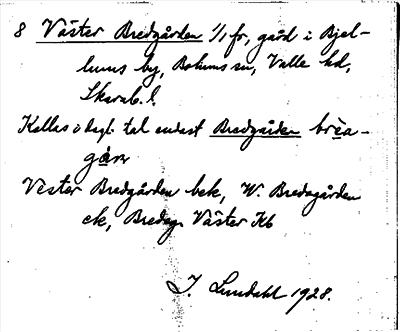 8 Väster Bredgården 1/1 fr, gård i Bjel-
lums by, Bolums sn, Valle hd,
Skarab. l.
Kallas i dagl. tal endast Bredgården brèa-
gårn
Väster Bredgården bek, W. Bredegården
ek, Bredeg. Väster Kb
J. Lundahl 1928.